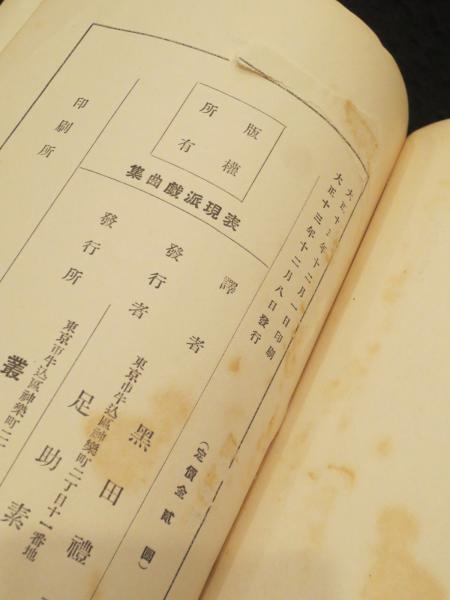 大正十三年十二月一日印刷
大正十三年十二月八日發行
版權
所有
表現派戲曲集
(定價金貳圓)
譯者 黑田禮
發行者 東京市牛込區神樂町二丁目十一番地
足助素
發行所 東京市牛込區神樂町二
叢
印刷所